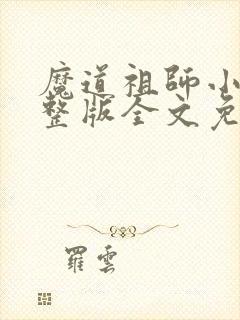 魔道祖師小
整版全文免
羅雲